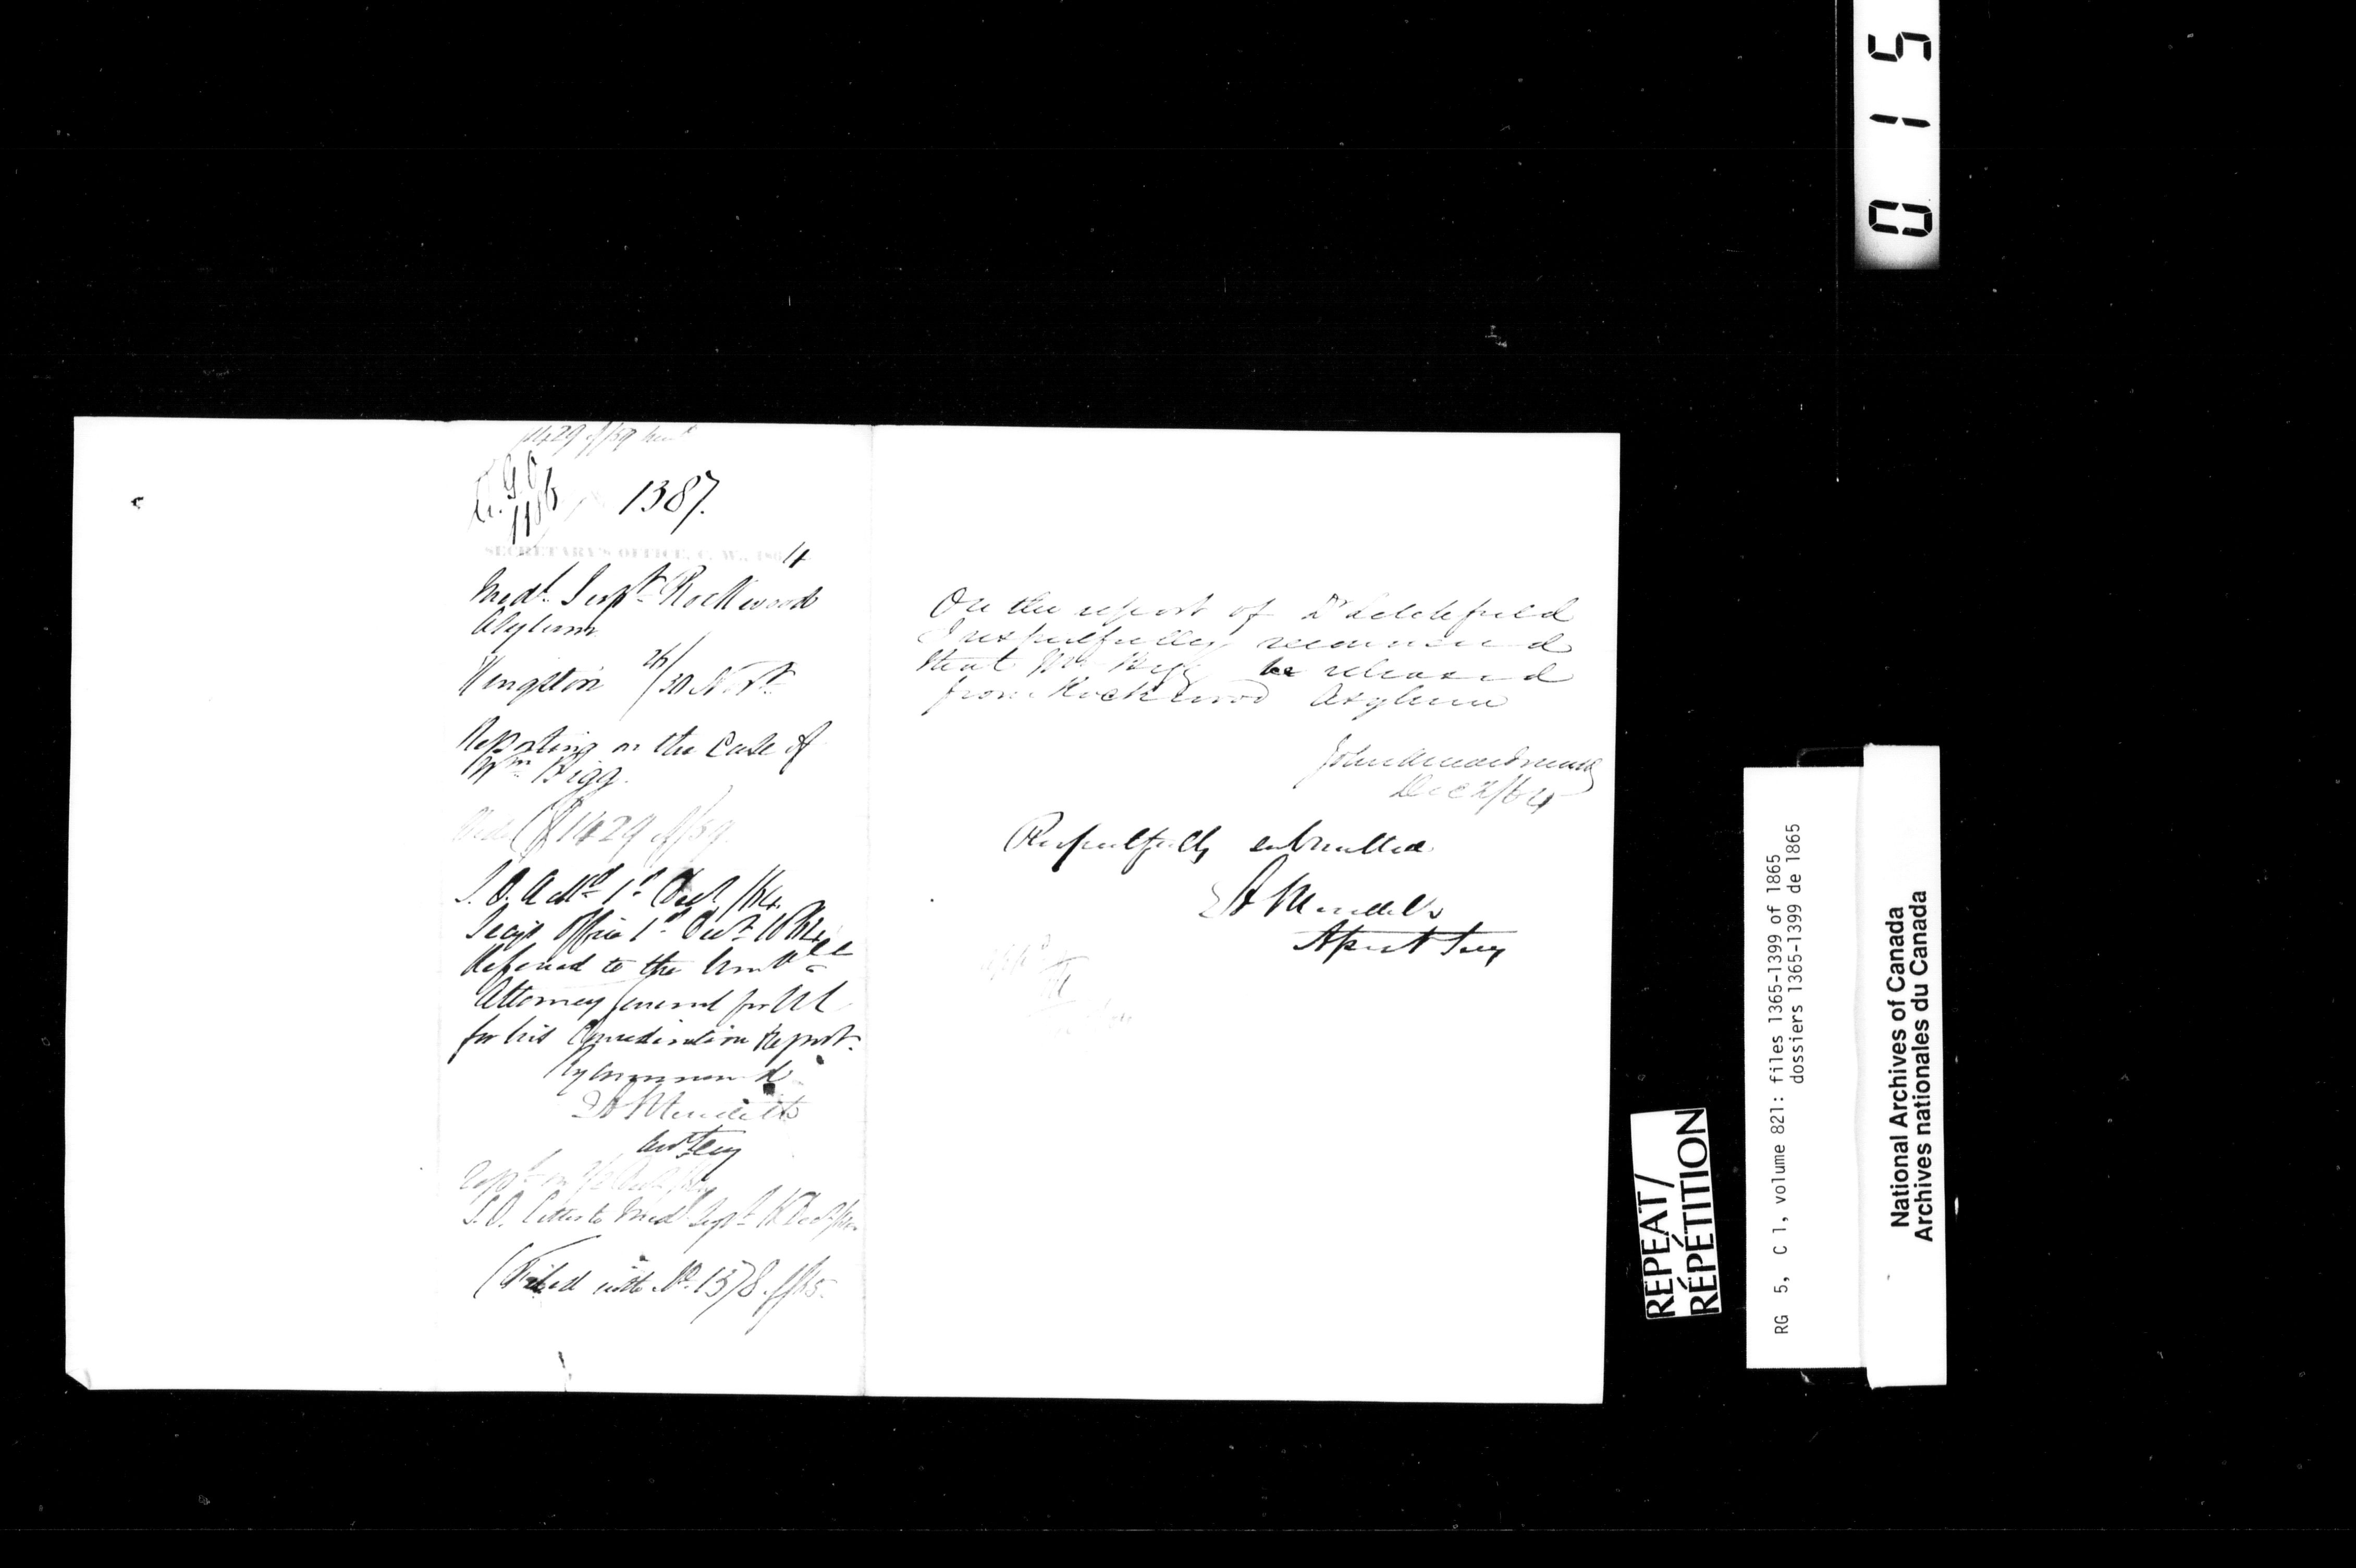 1429 of/59
G O
1186
1387.
SECRETARY'S OFFICE, C. W., 1864
Medl. Supt. Rockwood
Asylum
Kingston 26/30 Novr.
Reporting on the Case of
Wm. Bigg.
1429 of/59
1st Decr /64
Secys Office 1st Decr. 1864
Referred to the Honble
Attorney General for U C
for his Consideration & Report.
By Command
E A Meredith
Asst Secy
Decr /64
S. O. Letter to Medl Supt Decr /64
(Filed with No. 1378 of/65
On the report of Dr Litchfield
I respectfully recommend
that Wm Bigg be released
from Rockwood Asylum
John A Macdonald
Dec 2/64
Respectfully submitted
E A Meredith
Asst Secy
0 1 5
REPEAT/
RÉPÉTITION
RG 5, C 1, volume 821: files 1365-1399 of 1865
dossiers 1365-1399 de 1865
National Archives of Canada
Archives nationales du Canada